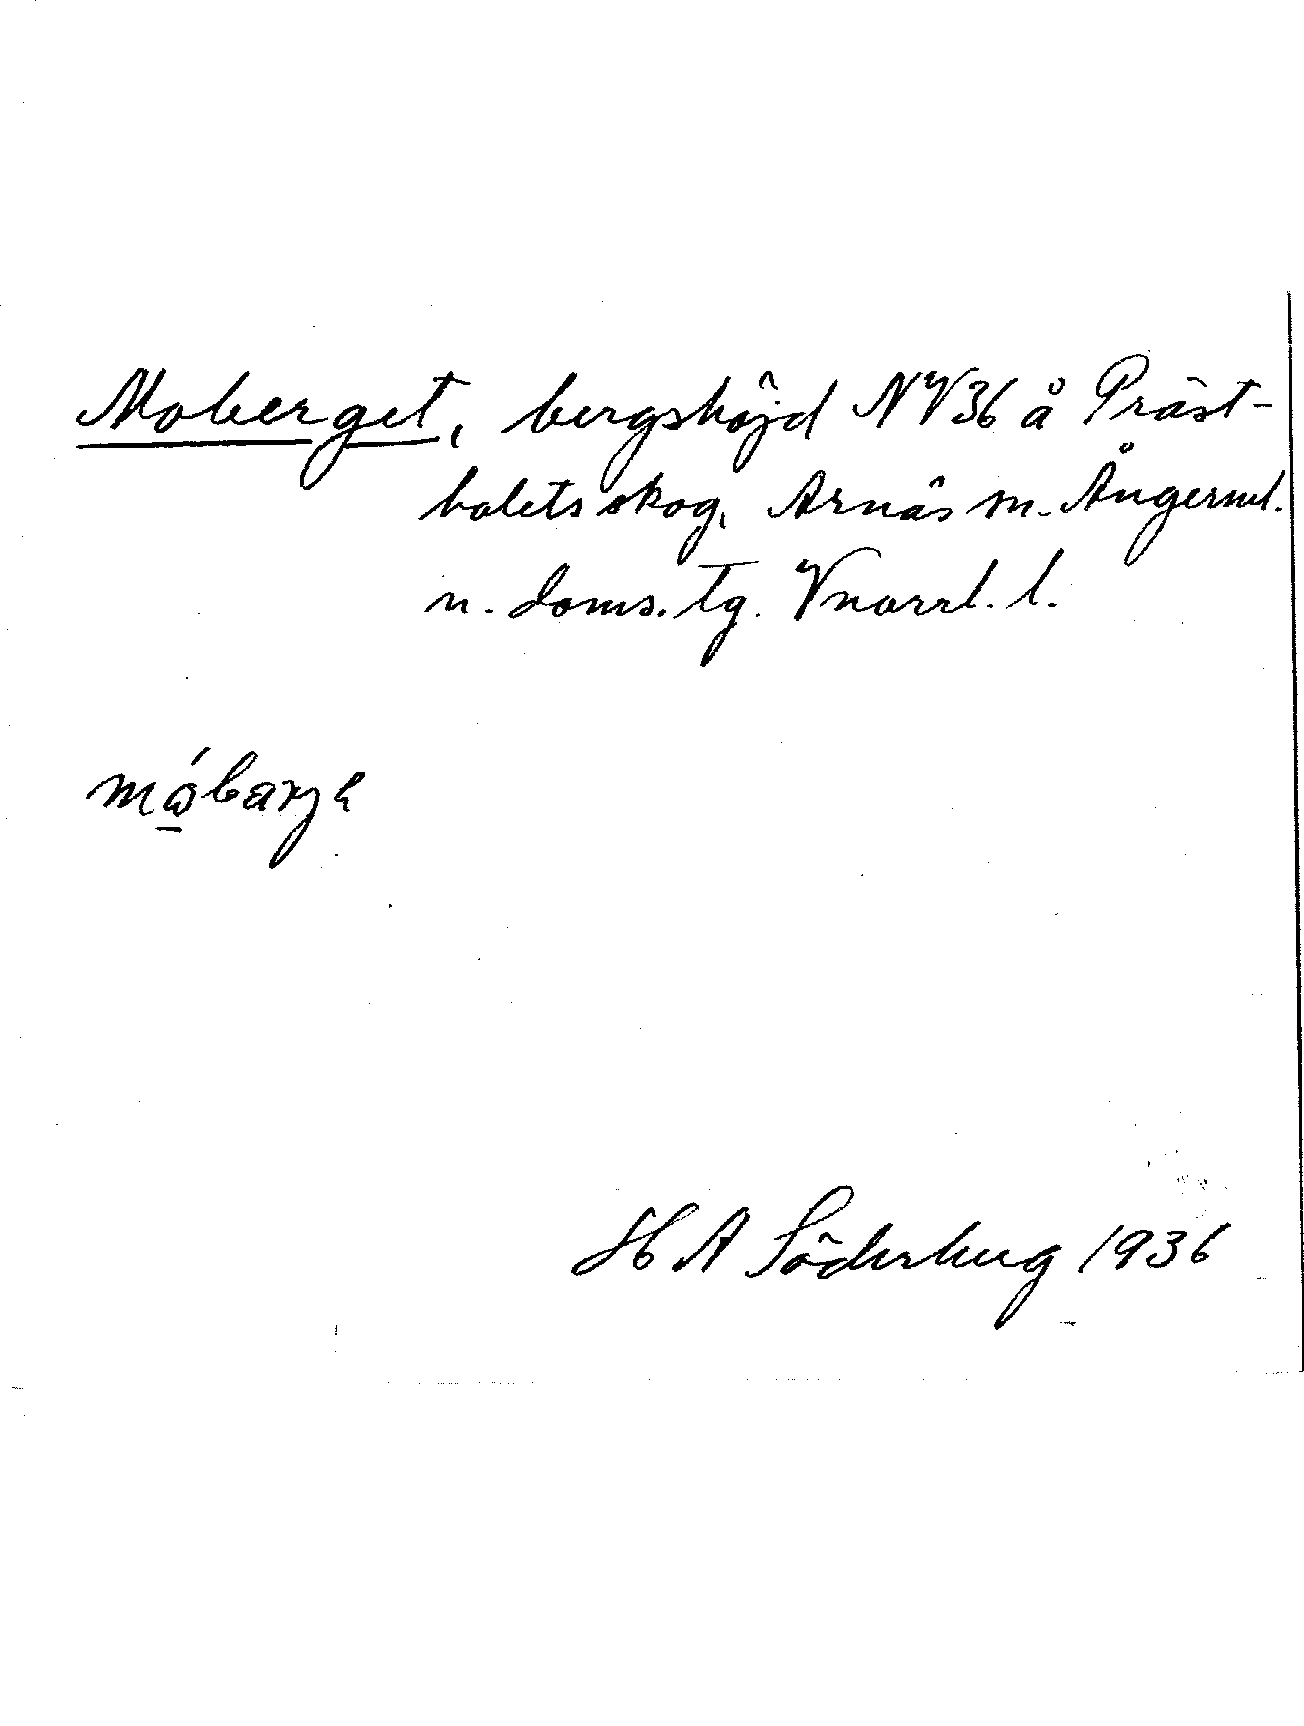 Moberget, bergshöjd NV36 å Präst-
bolets skog, Arnäs sn. Ångerml.
n. doms. tg. Vnorrl. l.
mó̠barjə
H A Söderberg 1936